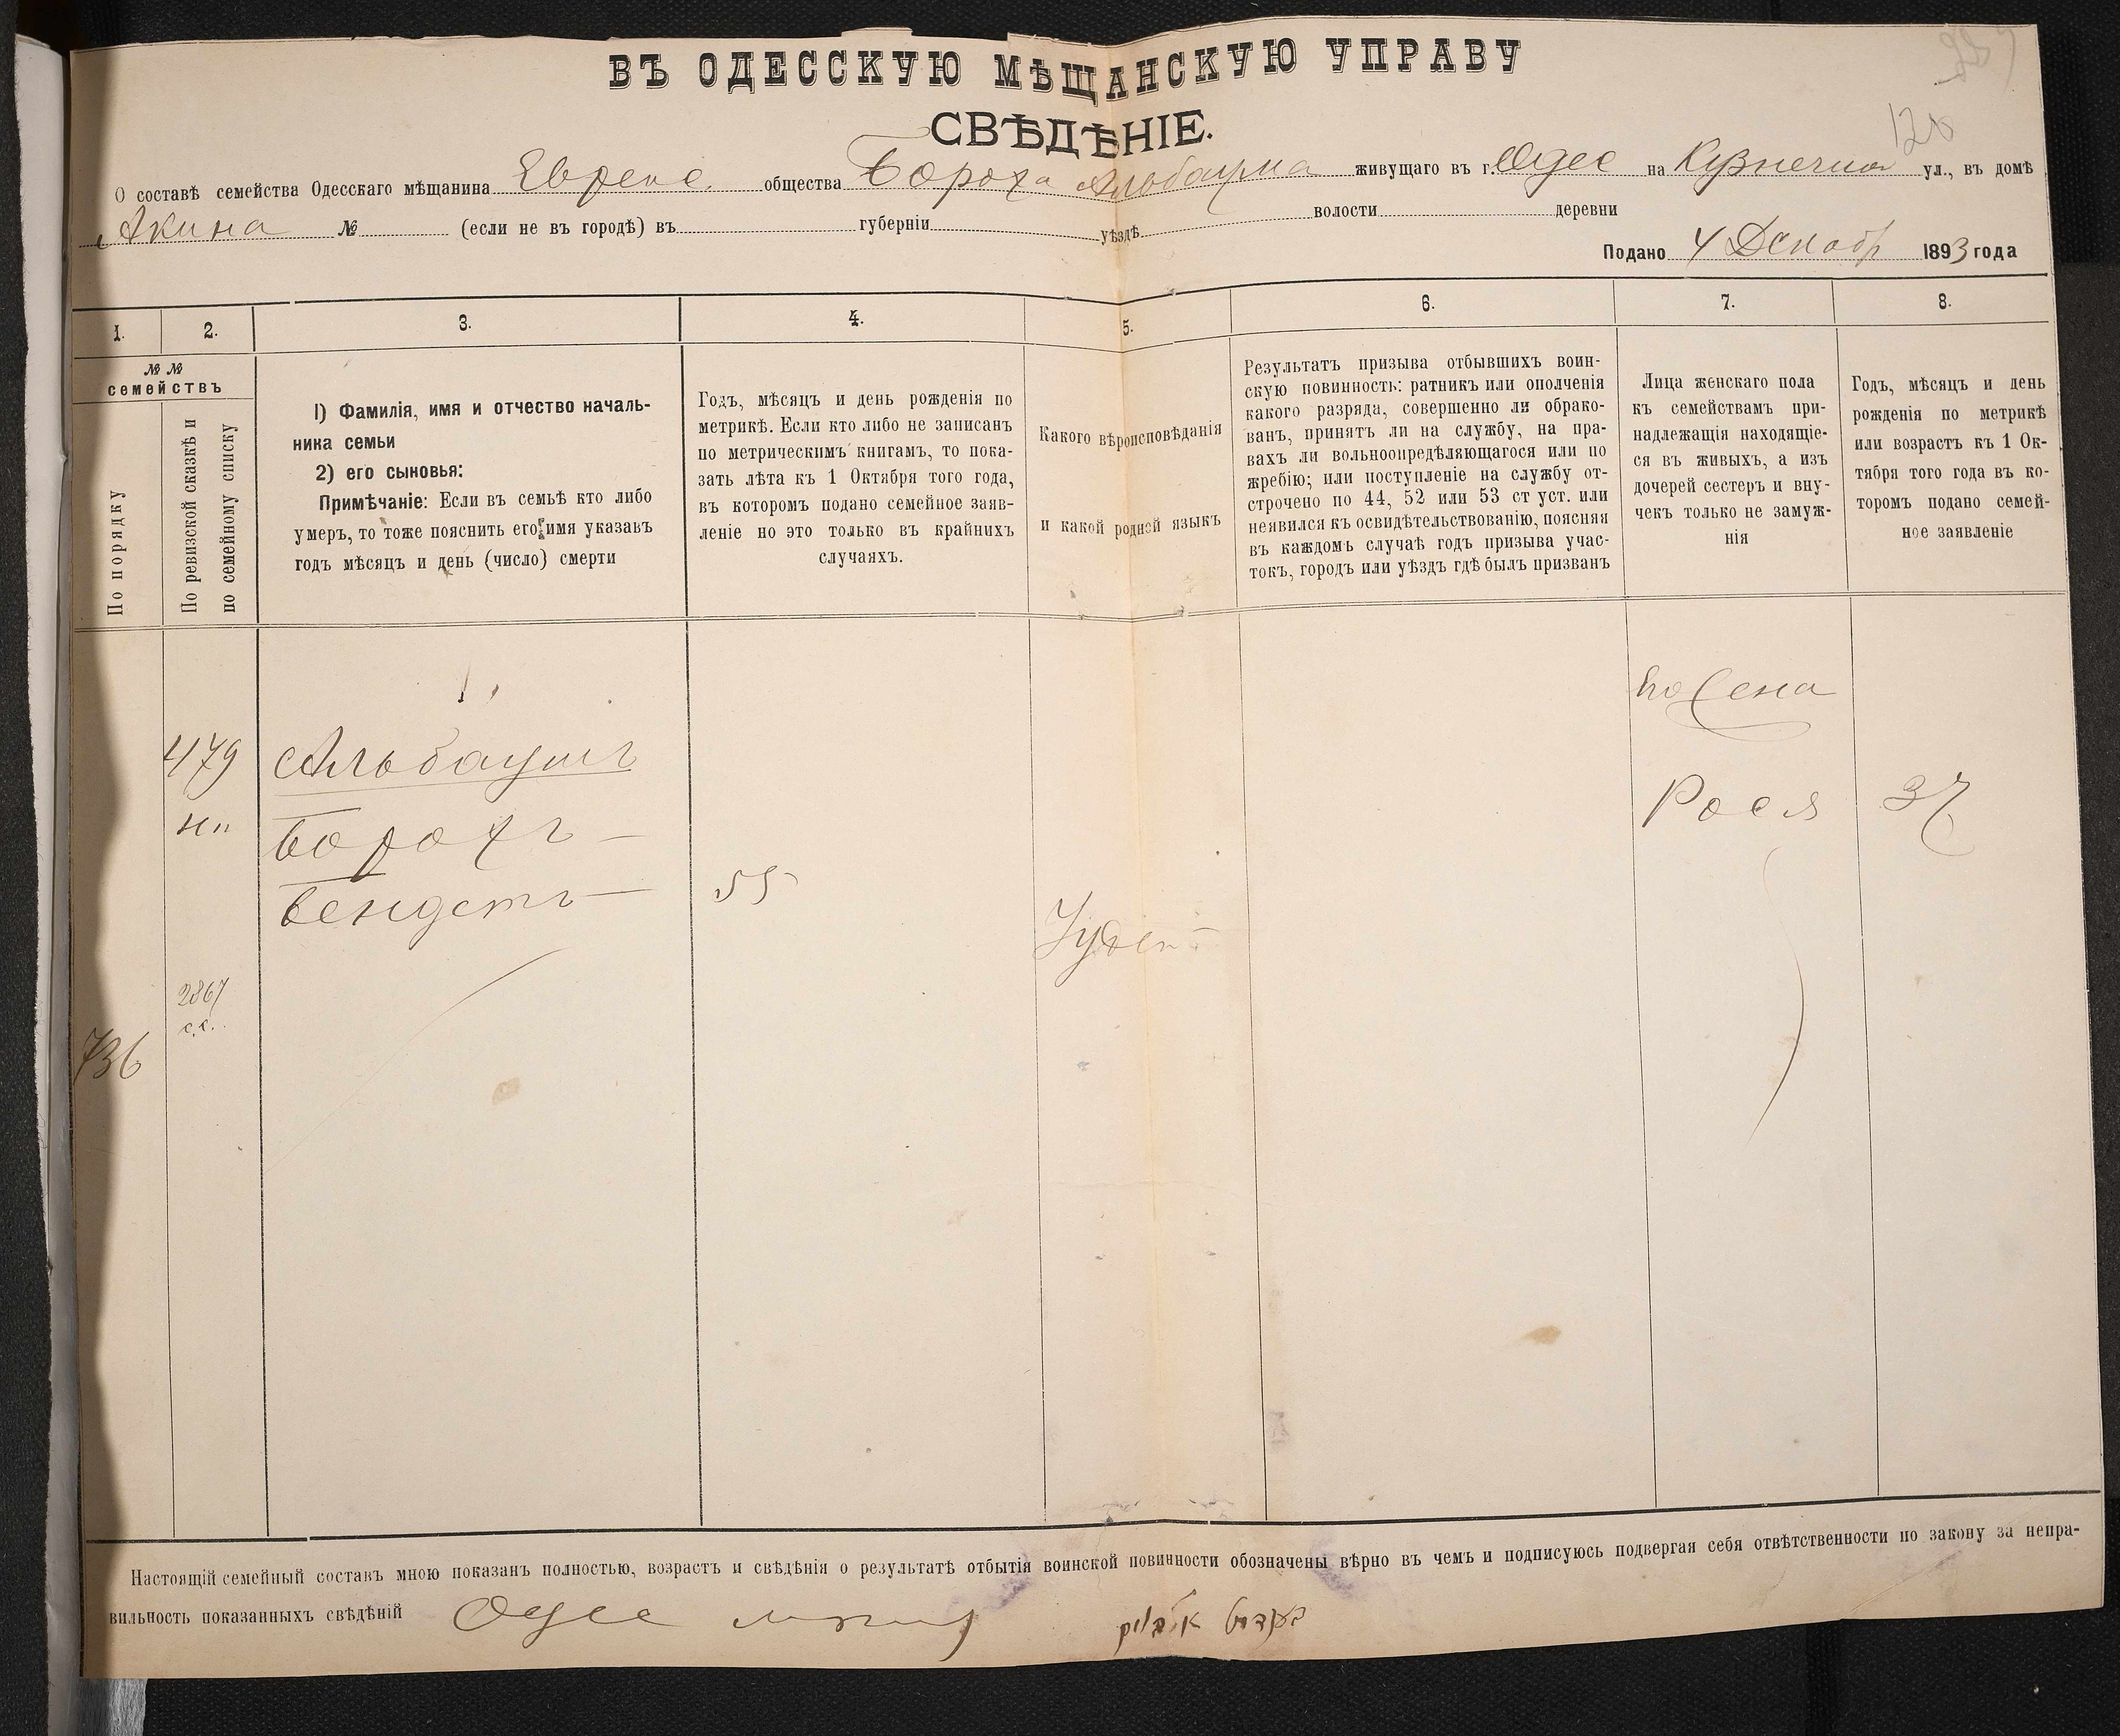 ВЪ ОДЕССКУЮ МѢЩАНСКУЮ УПРАВУ
СВѢДѢНІЕ.
120
О составѣ семейства Одесскаго мѣщанина Еврейс. общества Бороха Альбаума живущаго въ г. Одес на Кузнечной ул., въ домѣ
Акина № (если не въ городѣ) въ губерніи уѣздѣ волости деревни
Подано 4 Декабр 1893 года
1. 2. 3. 4. 5. 6. 7. 8.
№ №
семействъ
По порядку
По ревизской сказкѣ и
по семейному списку
1) Фамилія, имя и отчество началь-
ника семьи
2) его сыновья:
Примѣчаніе: Если въ семьѣ кто либо
умеръ, то тоже пояснить его имя указавъ
годъ мѣсяцъ и день (число) смерти
Годъ, мѣсяцъ и день рожденія по
метрикѣ. Если кто либо не записанъ
по метрическимъ книгамъ, то пока-
зать лѣта къ 1 Октября того года,
въ которомъ подано семейное заяв-
леніе но это только въ крайнихъ
случаяхъ.
Какого вѣроисповѣданія
и какой родной языкъ
Результатъ призыва отбывшихъ воин-
скую повинность: ратникъ или ополченія
какого разряда, совершенно ли обрако-
ванъ, принятъ ли на службу, на пра-
вахъ ли вольноопредѣляющагося или по
жребію; или поступленіе на службу от-
строчено по 44, 52 или 53 ст уст. или
неявился къ освидѣтельствованію, поясняя
въ каждомъ случаѣ годъ призыва учас-
токъ, городъ или уѣздъ гдѣ былъ призванъ
Лица женскаго пола
къ семействамъ при-
надлежащія находящіе-
ся въ живыхъ, а изъ
дочерей сестеръ и вну-
чекъ только не замуж-
нія
Годъ, мѣсяцъ и день
рожденія по метрикѣ
или возрастъ къ 1 Ок-
тября того года въ ко-
торомъ подано семей-
ное заявленіе
1.
479
Альбаумъ
Борохъ —
Бендетъ —
55
Іудей
Рося
37
2867
с.с.
736
Настоящій семейный составъ мною показанъ полностью, возрастъ и свѣдѣнія о результатѣ отбытія воинской повинности обозначены вѣрно въ чемъ и подписуюсь подвергая себя отвѣтственности по закону за непра-
вильность показанныхъ свѣдѣній Одес